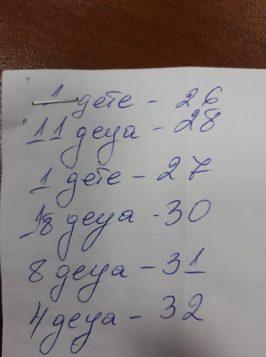 1 дете - 26
11 деца - 28
1 дете - 27
18 деца - 30
8 деца - 31
4 деца - 32